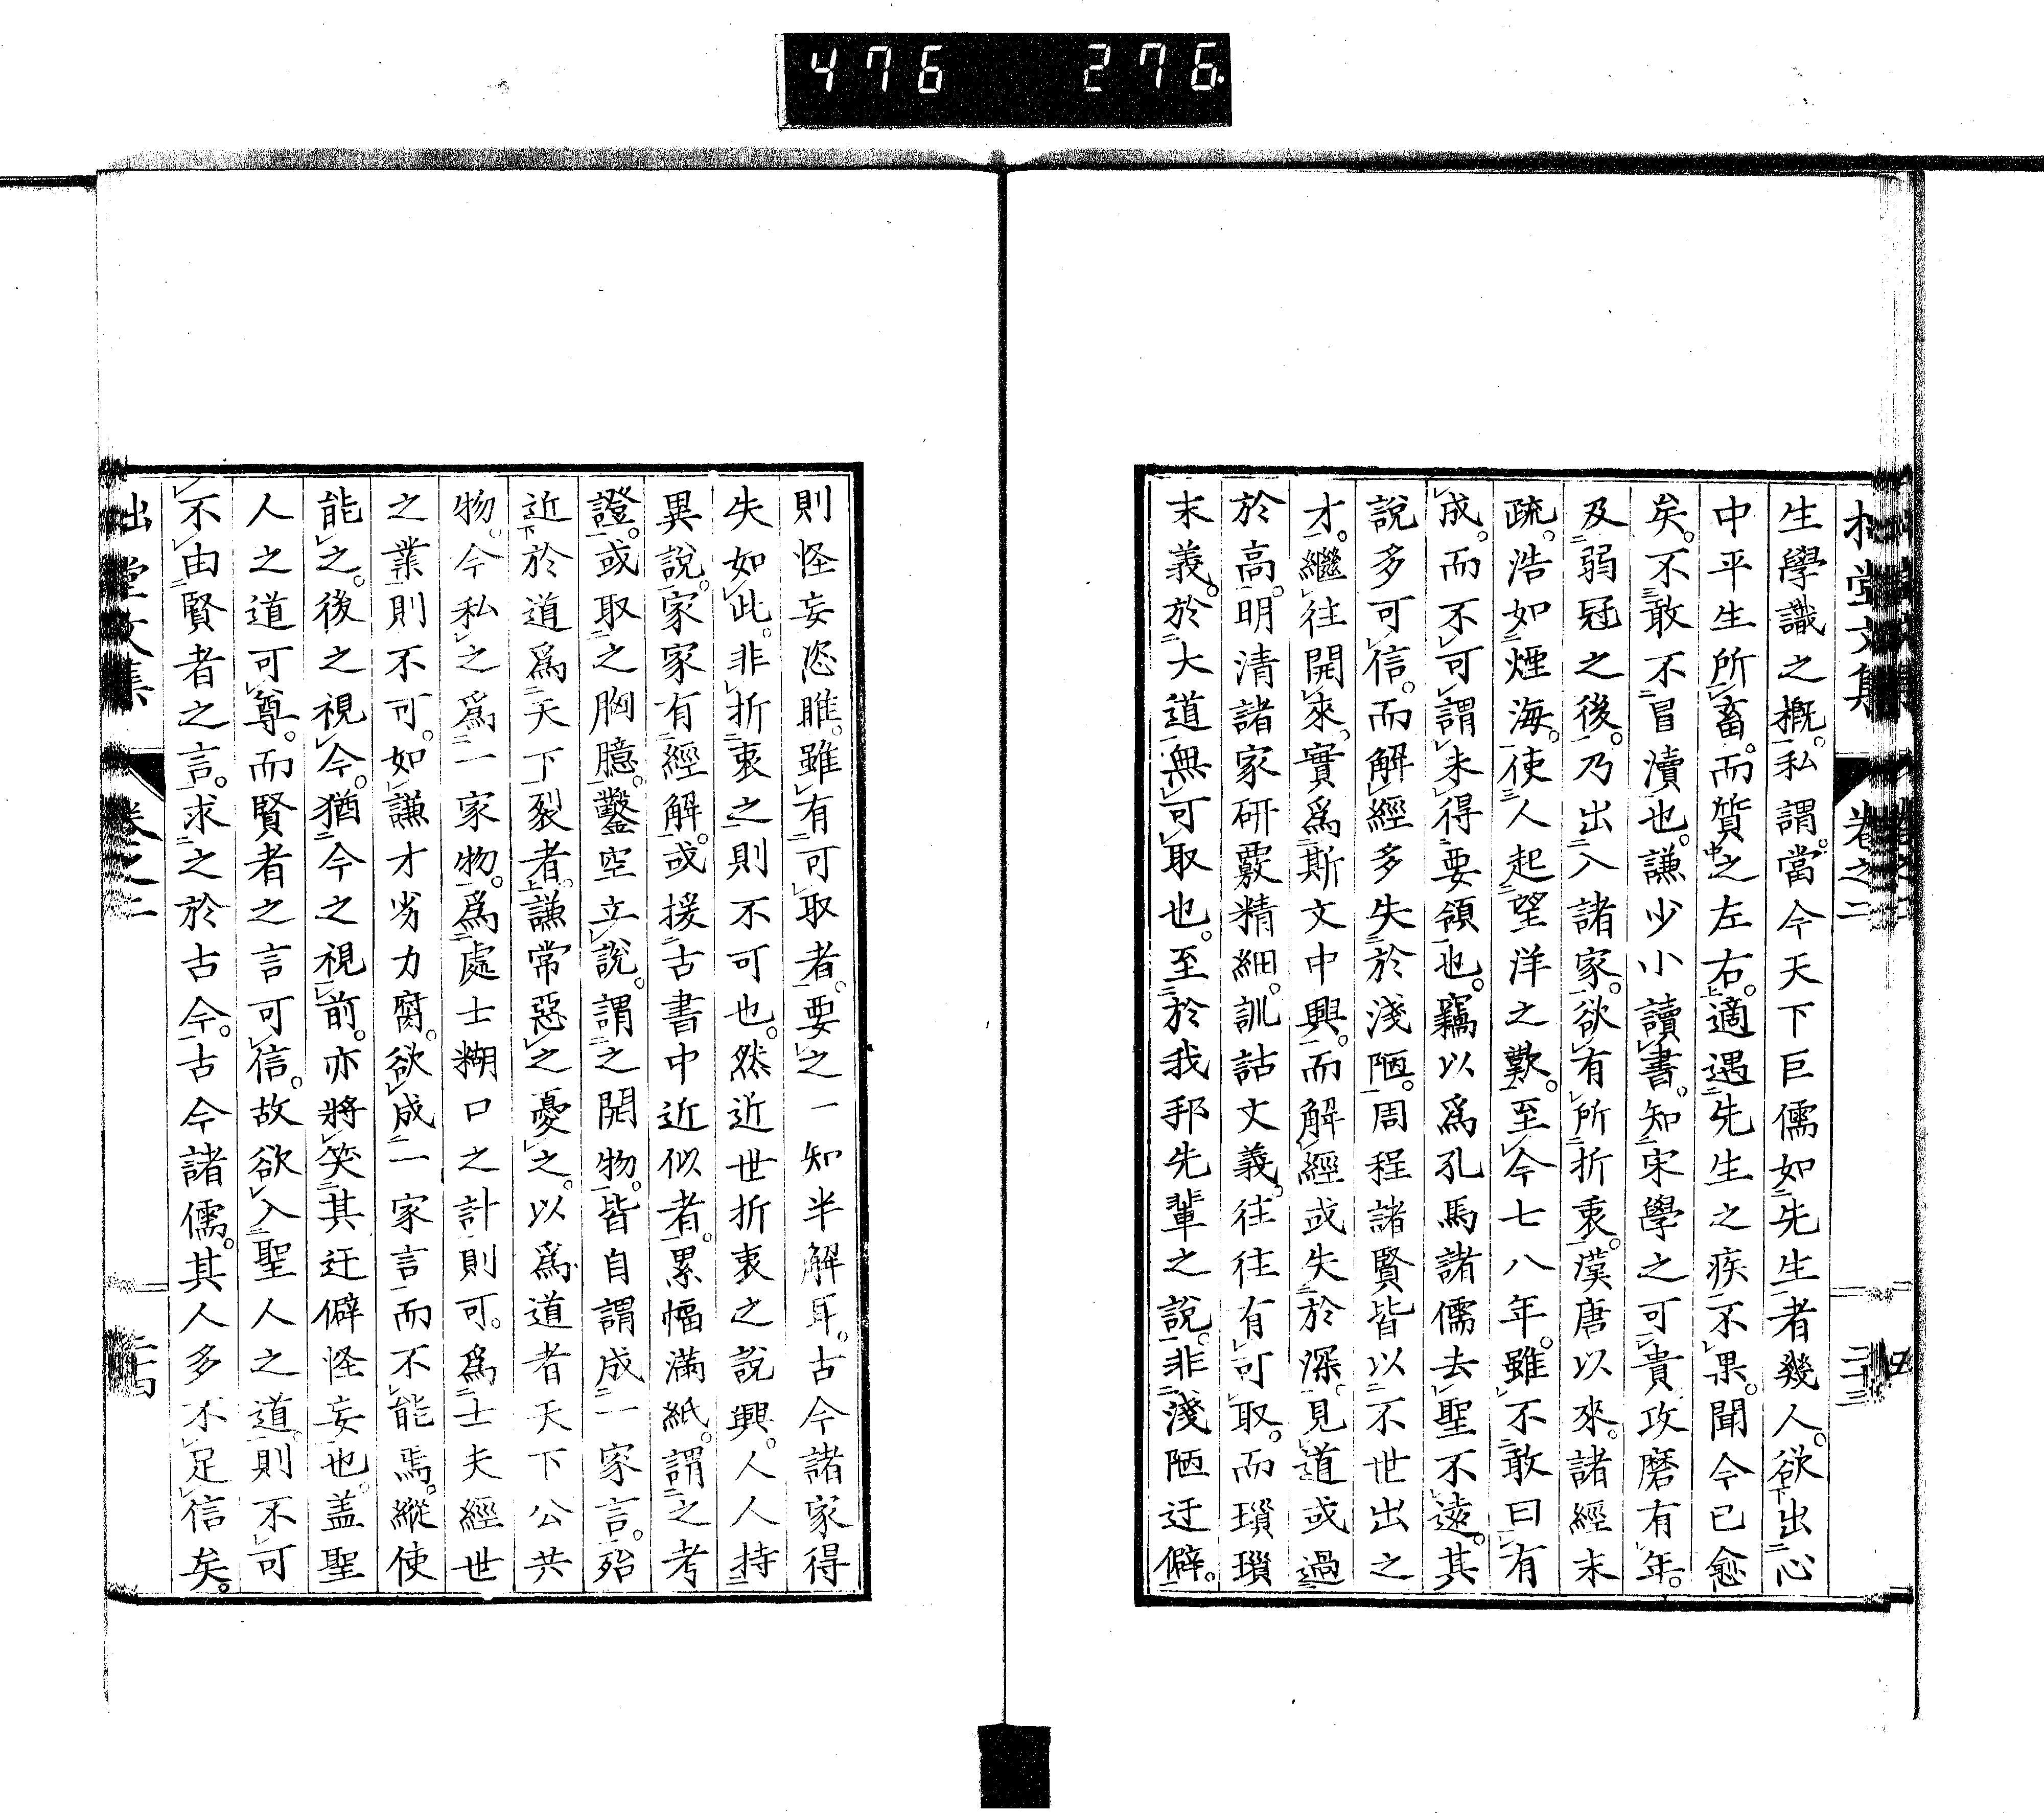 476 276
拙堂文集 卷之二 二十三
生學識之概。私謂。當今天下巨儒如先生者幾人。欲出心
中平生所畜。而質之左右。適遇先生之疾不果。聞今已愈
矣。不敢不冒瀆也。謙少小讀書。知宋學之可貴攻磨有年。
及弱冠之後。乃出入諸家。欲有所折衷。漢唐以來。諸經末
疏。浩如煙海。使人起望洋之歎。至今七八年。雖不敢曰有
成。而不可謂未得要領也。竊以為孔馬諸儒去聖不遠。其
說多可信。而解經多失於淺陋。周程諸賢皆以不世出之
才。繼往開來。實爲斯文中興。而解經或失於深。見道或過
於高。明清諸家研覈精細。訓詁文義。往往有可取。而瑣瑣
末義。於大道無可取也。至於我邦先輩之說。非淺陋迂僻。
則怪妄恣睢。雖有可取者。要之一知半解耳。古今諸家得
失如此。非折衷之則不可也。然近世折衷之說興。人人持
異說。家家有經解。或援古書中近似者。累幅滿紙。謂之考
證。或取之胸臆。鑿空立說。謂之開物。皆自謂成一家言。殆
近於道爲天下裂者。謙常惡之憂之。以爲道者天下公共
物。今私之爲一家物。爲處士糊口之計則可。爲士夫經世
之業則不可。如謙才劣力腐。欲成一家言而不能焉。縱使
能之。後之視今。猶今之視前。亦將笑其迂僻怪妄也。盖聖
人之道可尊。而賢者之言可信。故欲入聖人之道則不可
不由賢者之言。求之於古今。古今諸儒。其人多不足信矣。
拙堂文集 卷之二